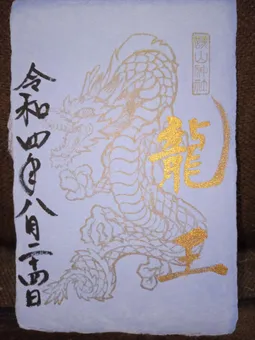 龍王
令和四年八月二十四日